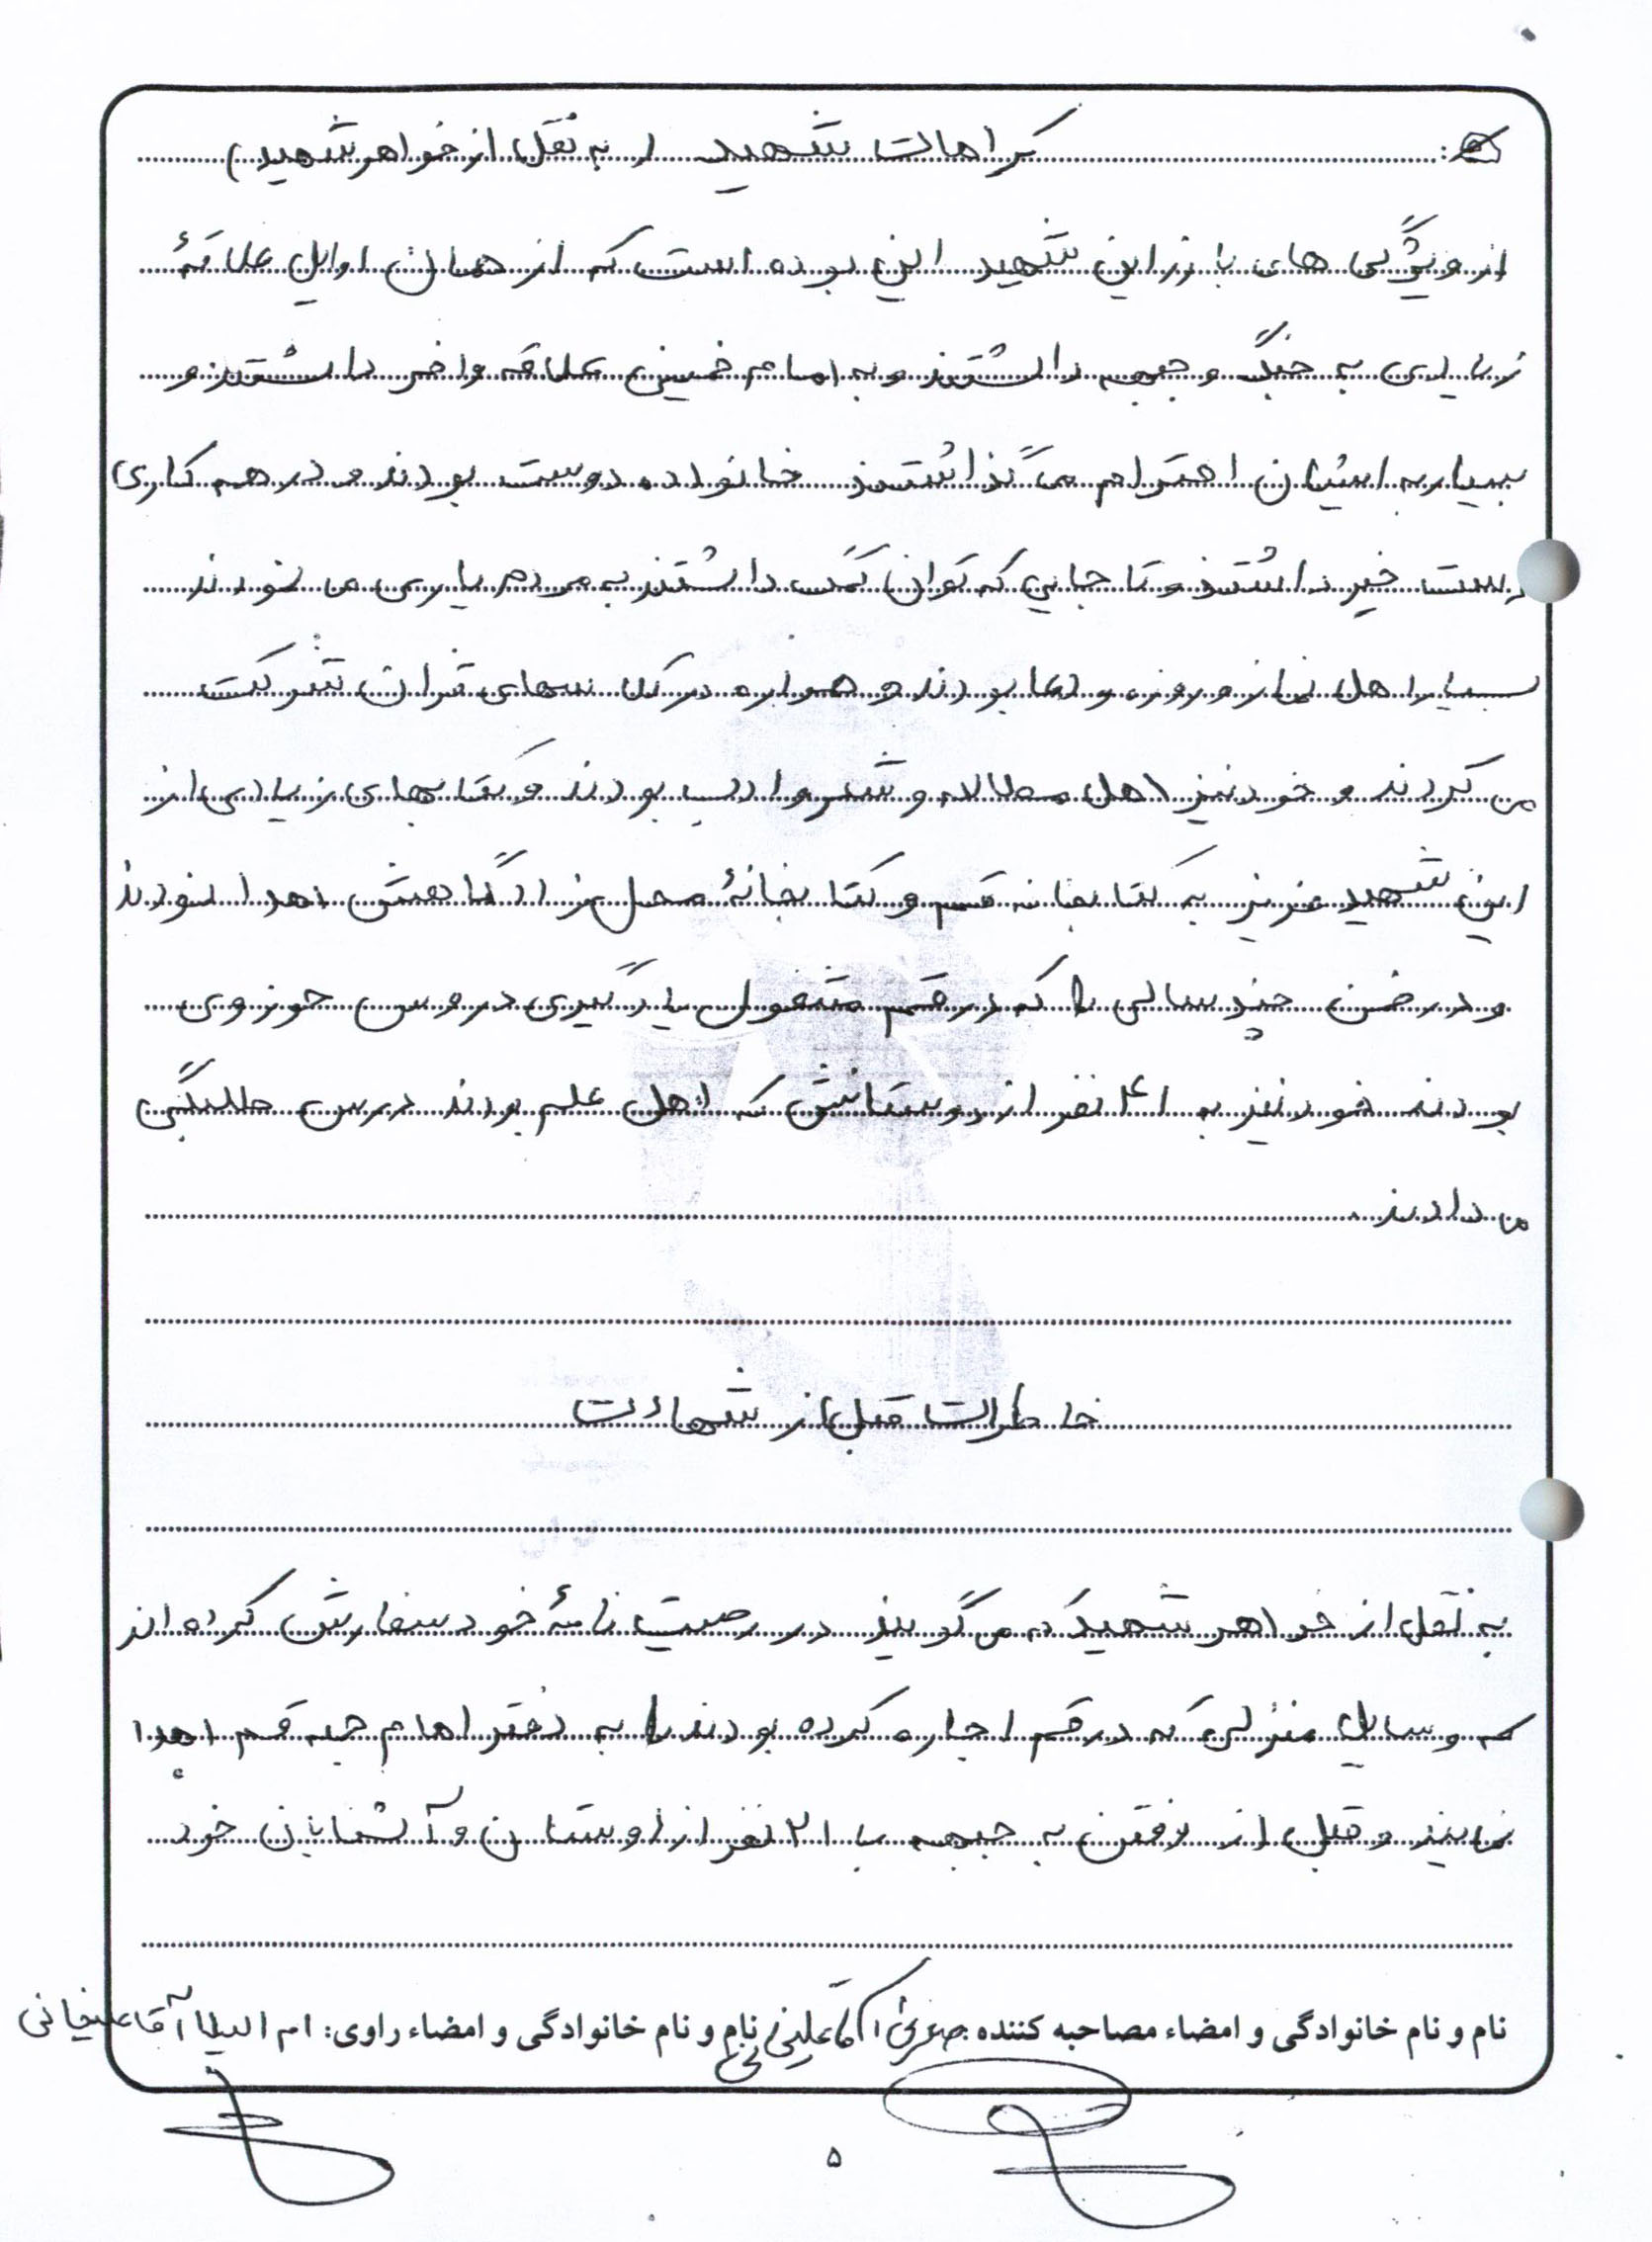 کرامات شهید (به نقل از خواهر شهید)
از ویژگی های بارز این شهید این بوده است که از همان اوایل علاقهٔ
زیادی به جنگ و جبهه داشتند و به امام خمینی علاقه وافر داشتند و
بسیار به ایشان احترام می گذاشتند خانواده دوست بودند و در هم کاری
دست خیر داشتند و تا جایی که توان کمک داشتند به مردم یاری می نمودند
بسیار اهل نماز و روزه و دعا بودند و همواره در کلاسهای قرآن شرکت
می کردند و خود نیز اهل مطالعه و شعر و ادب بودند و کتابهای زیادی از
این شهید عزیز به کتابخانه قم و کتابخانهٔ محل زادگاهش اهدا نمودند
و در ضمن چند سالی که در قم مشغول یادگیری دروس حوزوی
بودند خود نیز به ۴۱ نفر از دوستانش که اهل علم بودند درس طلبگی
می دادند.
خاطرات قبل از شهادت
به نقل از خواهر شهید که می گویند در وصیت نامهٔ خود سفارش کرده اند
که وسایل منزلی که در قم اجاره کرده بودند را به دفتر امام جمعه قم اهدا
نمایند و قبل از رفتن به جبهه با ۲۱ نفر از دوستان و آشنایان خود
نام و نام خانوادگی و امضاء مصاحبه کننده: صغری آقاعلیخانی نام و نام خانوادگی و امضاء راوی: ام البیلا آقاعلیخانی
۵